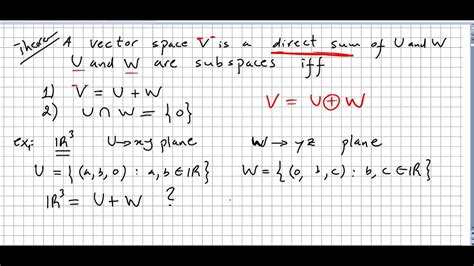 Theorem A vector space V is a direct sum of U and W
U and W are subspaces iff
1) V = U + W
2) U ∩ W = {0}
V = U ⊕ W
ex: ℝ³ U → xy plane W → yz plane
U = {(a, b, 0) : a, b ∈ ℝ} W = {(0, b, c) : b, c ∈ ℝ}
ℝ³ = U + W ?